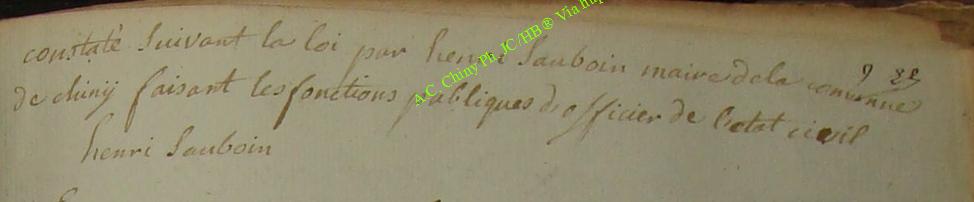 constaté suivant la loi par henri Sauboin maire dela commune
de chinÿ faisant les fonctions publiques d'officier de l'etat civil
henri Sauboin
A.C. Chiny Ph. JC/HB® Via